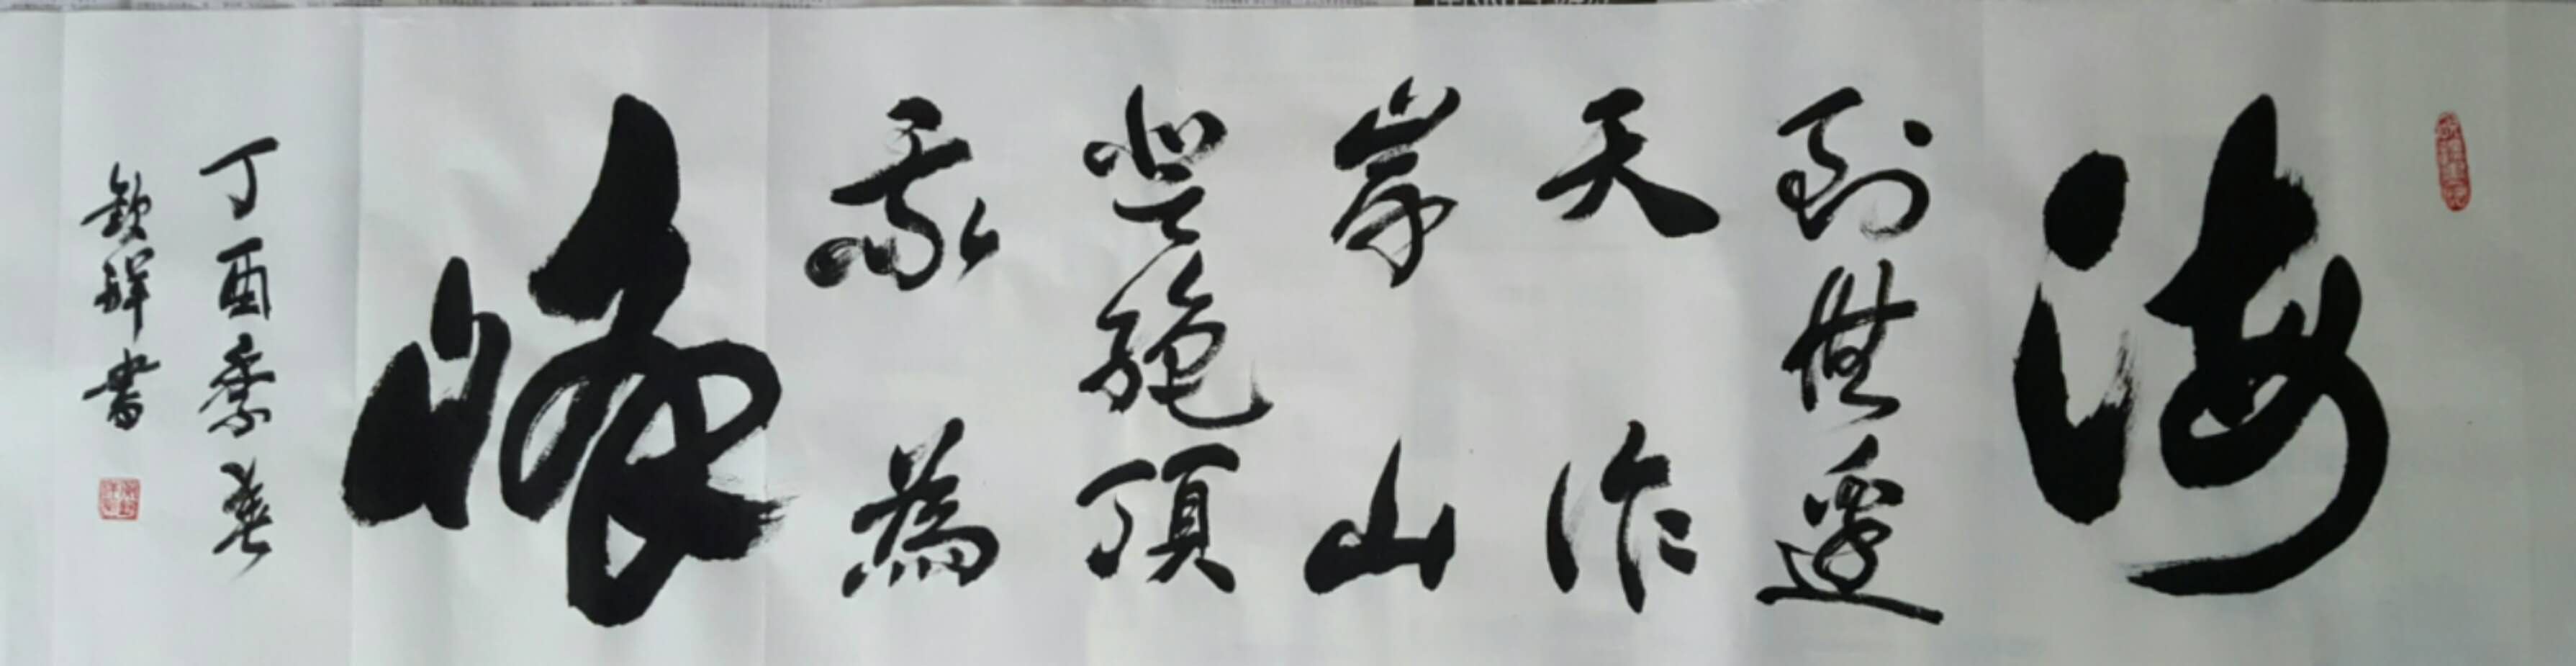 海
到無邊
天作
岸山
登絕頂
我為
峰
丁酉季春
欽祥書